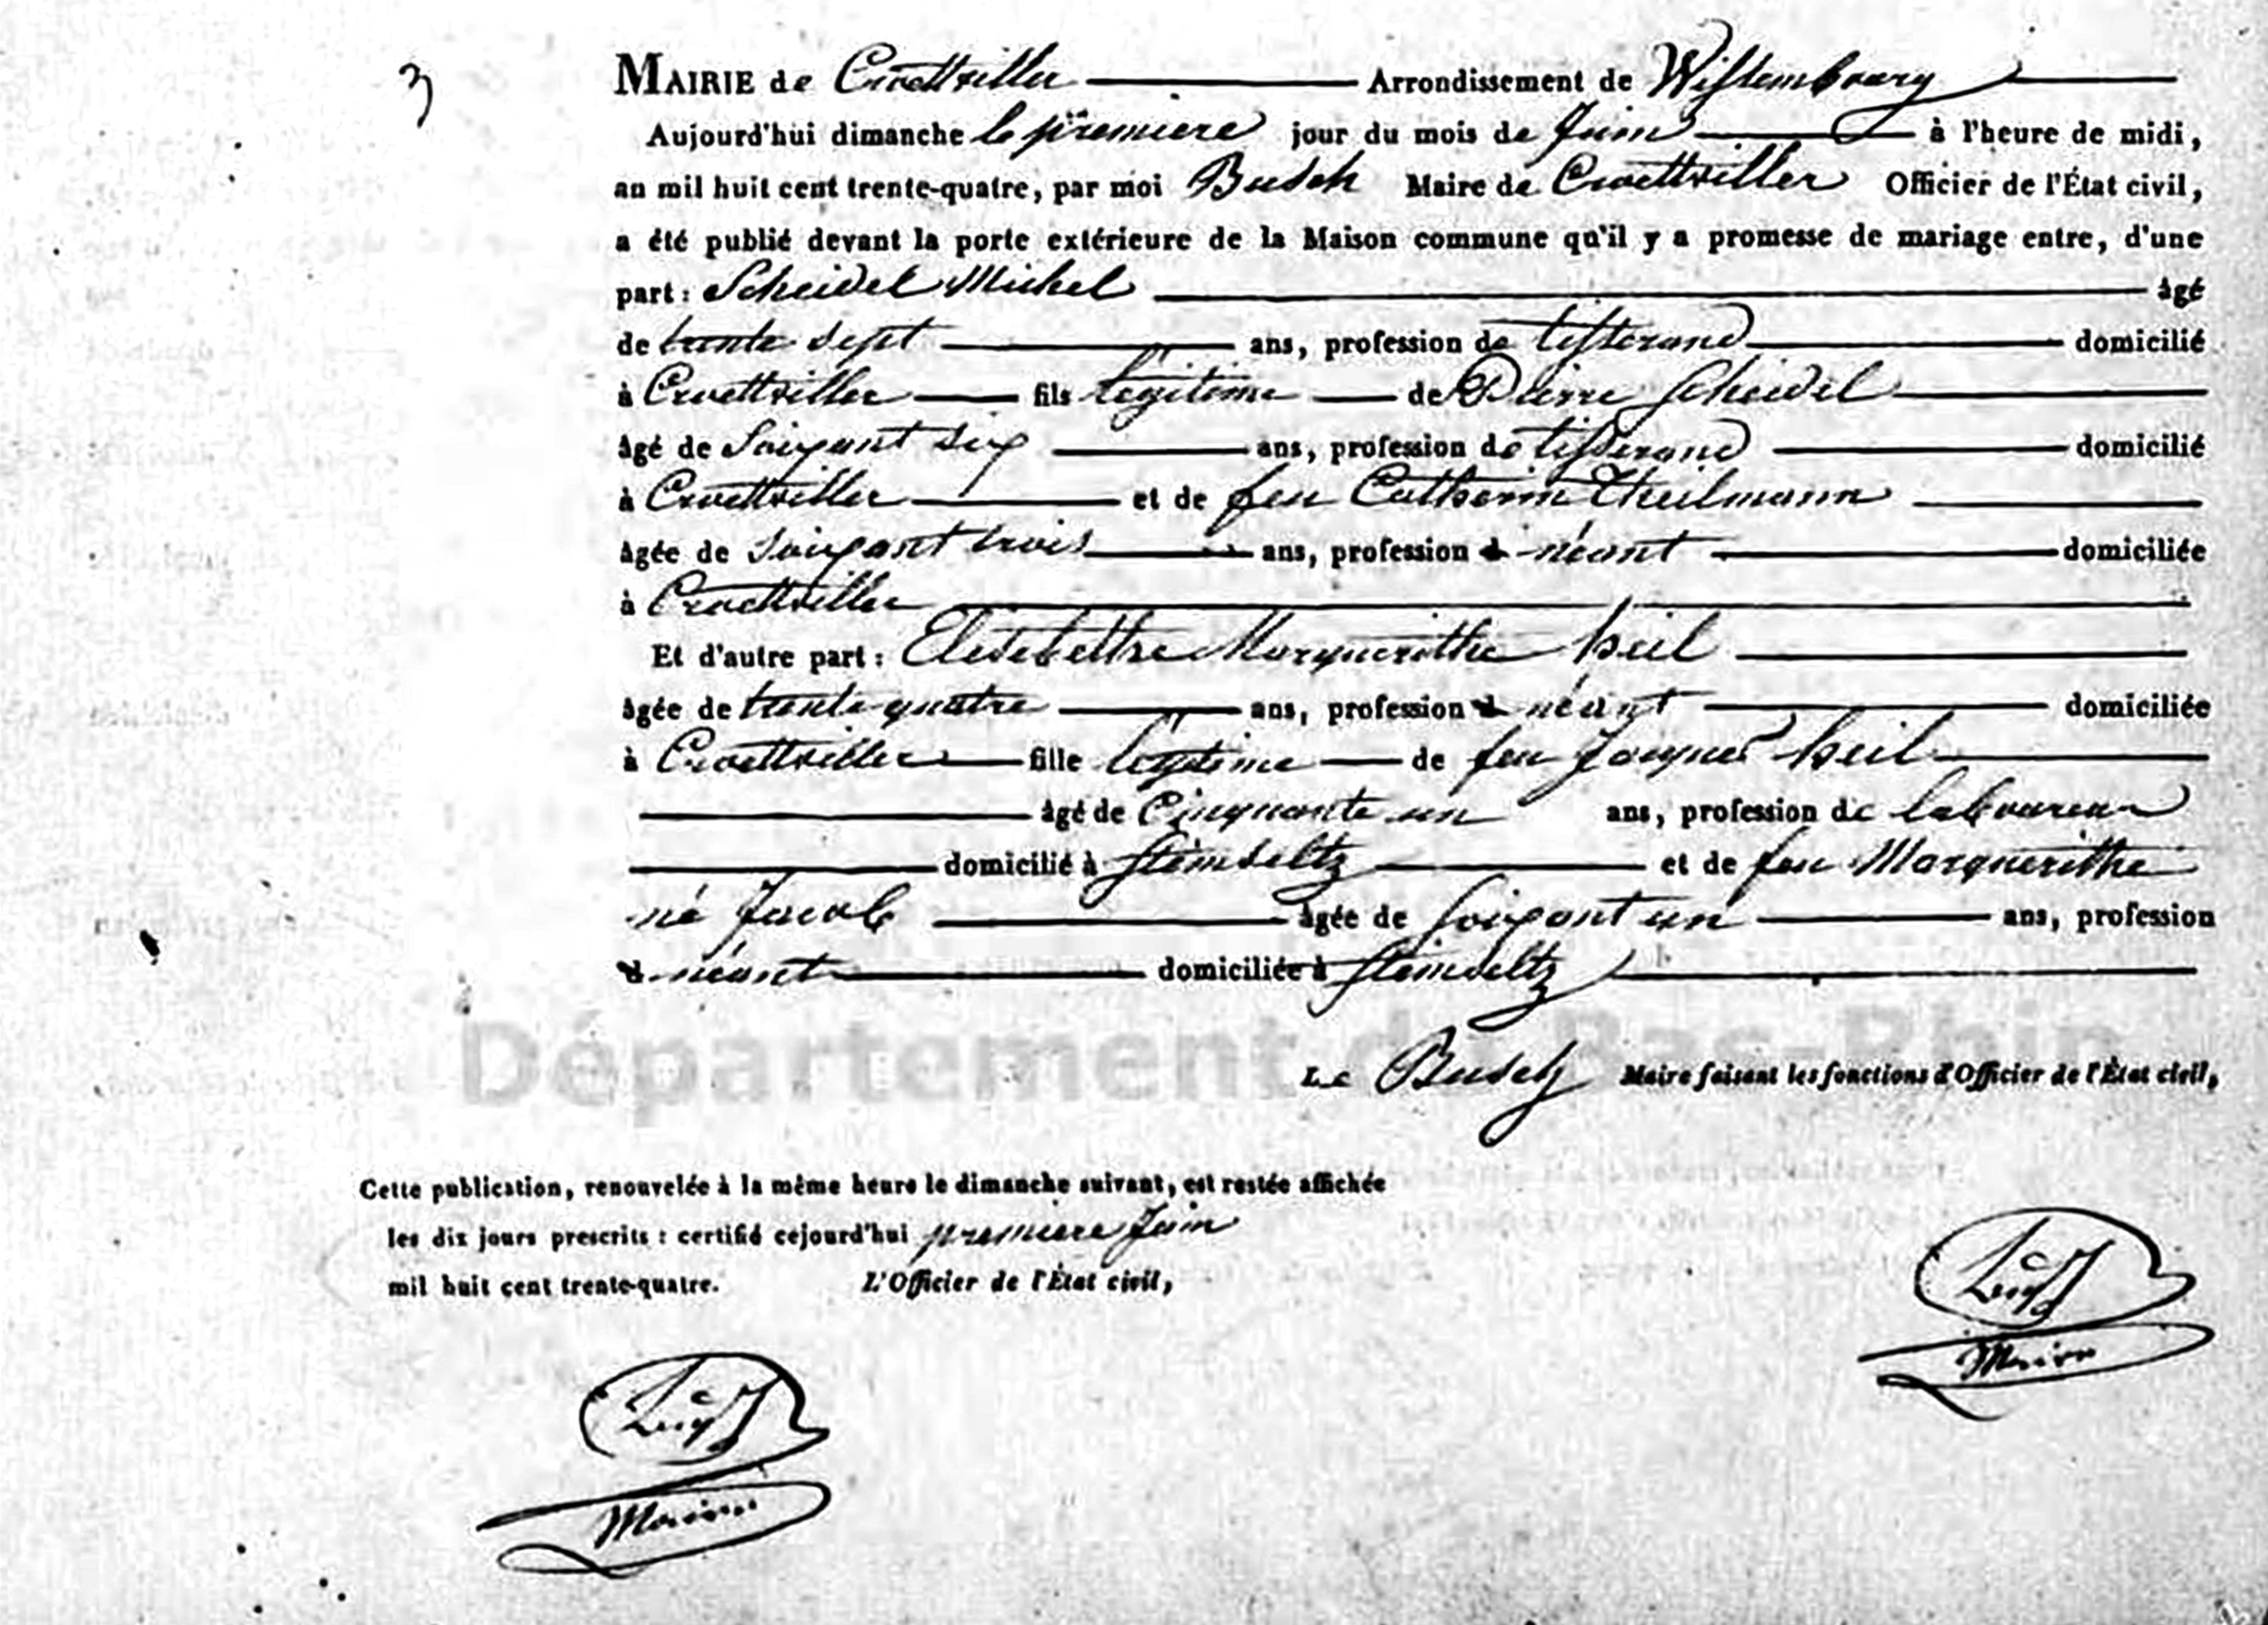 3
MAIRIE de Croettwiller Arrondissement de Wissembourg
Aujourd'hui dimanche le premiere jour du mois de Juin à l'heure de midi,
an mil huit cent trente-quatre, par moi Busch Maire de Croettwiller Officier de l'État civil,
a été publié devant la porte extérieure de la Maison commune qu'il y a promesse de mariage entre, d'une
part : Scheidel Michel âgé
de trente sept ans, profession de tisserand domicilié
à Croettwiller fils legitime de Pierre Scheidel
âgé de Soixant six ans, profession de tisserand domicilié
à Croettwiller et de feu Catherin Theilmann
âgée de Soixant trois ans, profession néant domiciliée
à Croettwiller
Et d'autre part : Elisebethe Marguerithe Keil
âgée de trente quatre ans, profession néant domiciliée
à Croettwiller fille legitime de feu Jacques Keil
âgé de Cinquante un ans, profession de laboureur
domicilié à Steinseltz et de feu Marguerithe
né Jacob âgée de Soixant un ans, profession
néant domiciliée à Steinseltz
Département du Bas-Rhin
Le Busch Maire faisant les fonctions d'Officier de l'État civil,
Cette publication, renouvelée à la même heure le dimanche suivant, est restée affichée
les dix jours prescrits : certifié cejourd'hui premiere Juin
mil huit cent trente-quatre. L'Officier de l'État civil,
Maire
Maire